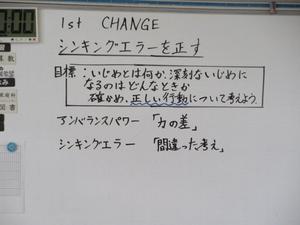 7:00
1st CHANGE
シンキングエラーを正す
目標:いじめとは何か、深刻ないじめに
なるのはどんなときか
確かめ、正しい行動について考えよう。
アンバランスパワー 「力の差」
シンキングエラー 「間違った考え」